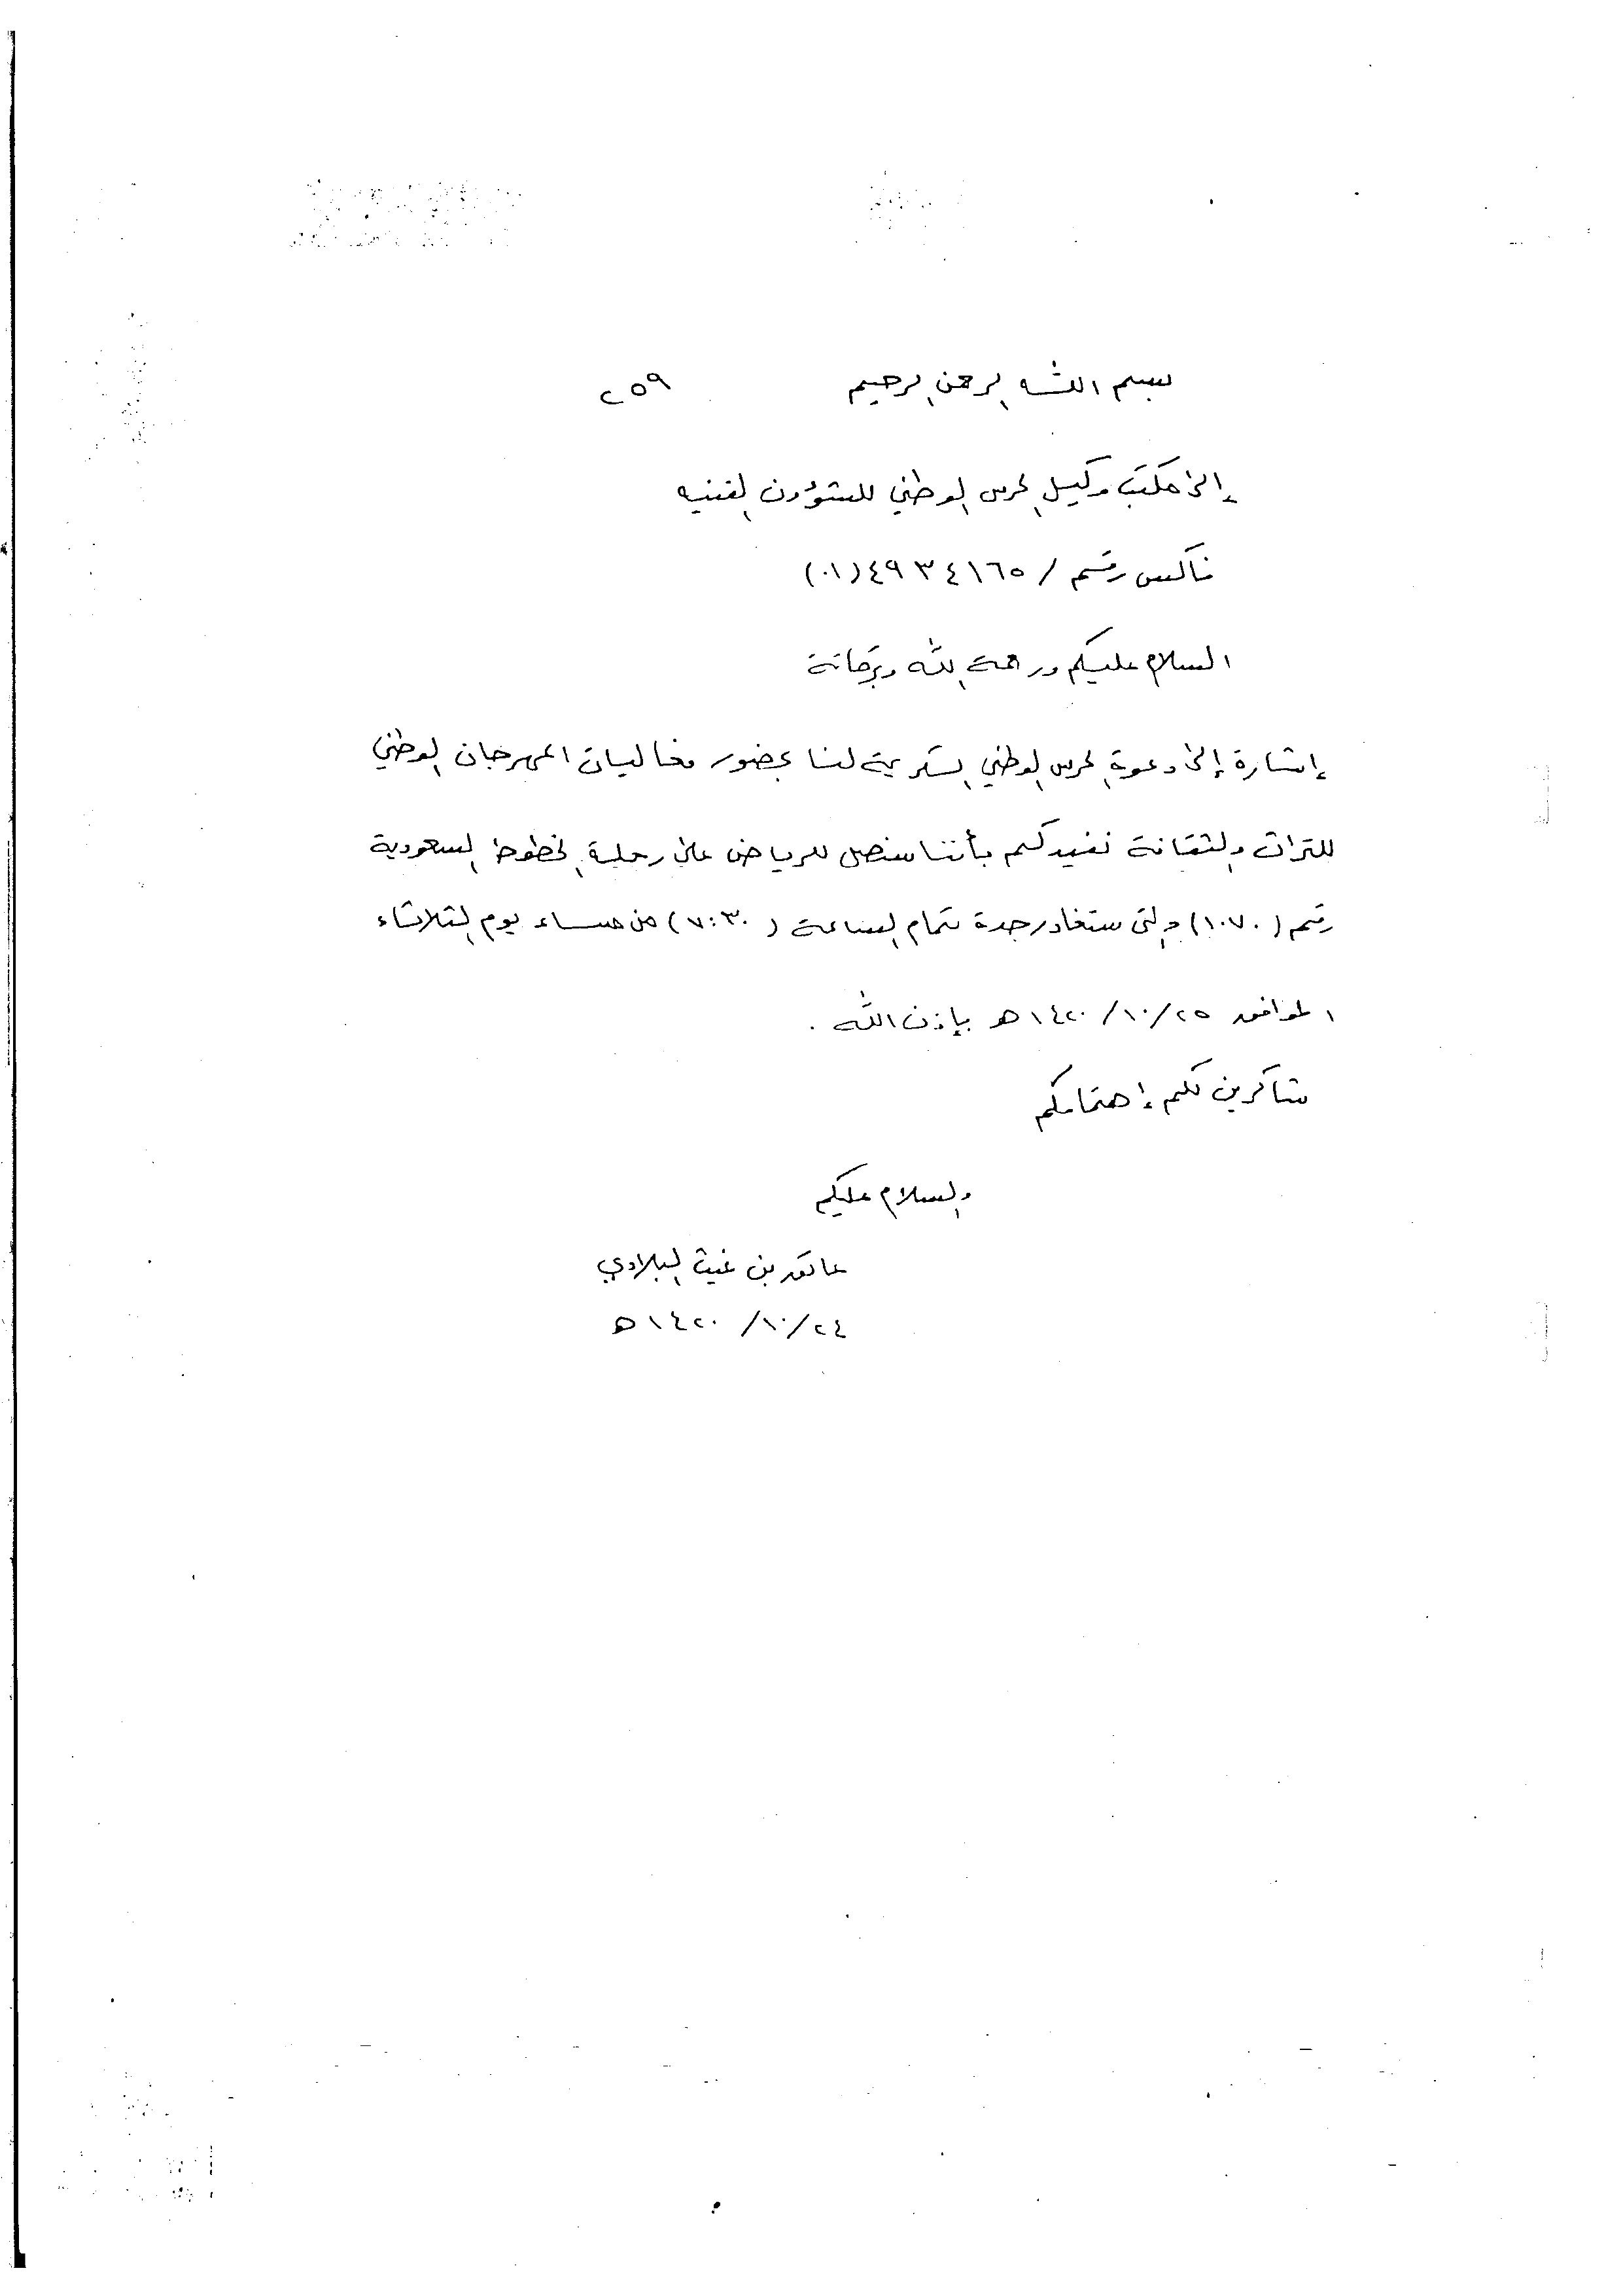 بسم الله الرحمن الرحيم ٢٥٩
إلى مكتب وكيل الحرس الوطني للشؤون الفنيه
فاكس رقم / ٤٩٣٤١٦٥ (٠١)
السلام عليكم ورحمة الله وبركاتة
إشارة إلى دعوة الحرس الوطني الكريمة لنا بحضور فعاليات المهرجان الوطني
للتراث والثقافة نفيدكم بأننا سنصل للرياض على رحلة الخطوط السعودية
رقم (١٠٧٠) والتي ستغادر جدة تمام الساعة (٧:٣٠) من مساء يوم الثلاثاء
الموافق ٢٥/١٠/١٤٢٠هـ بإذن الله .
شاكرين لكم إهتمامكم
والسلام عليكم
عاتق بن غيث البلادي
٢٤/١٠/١٤٢٠هـ